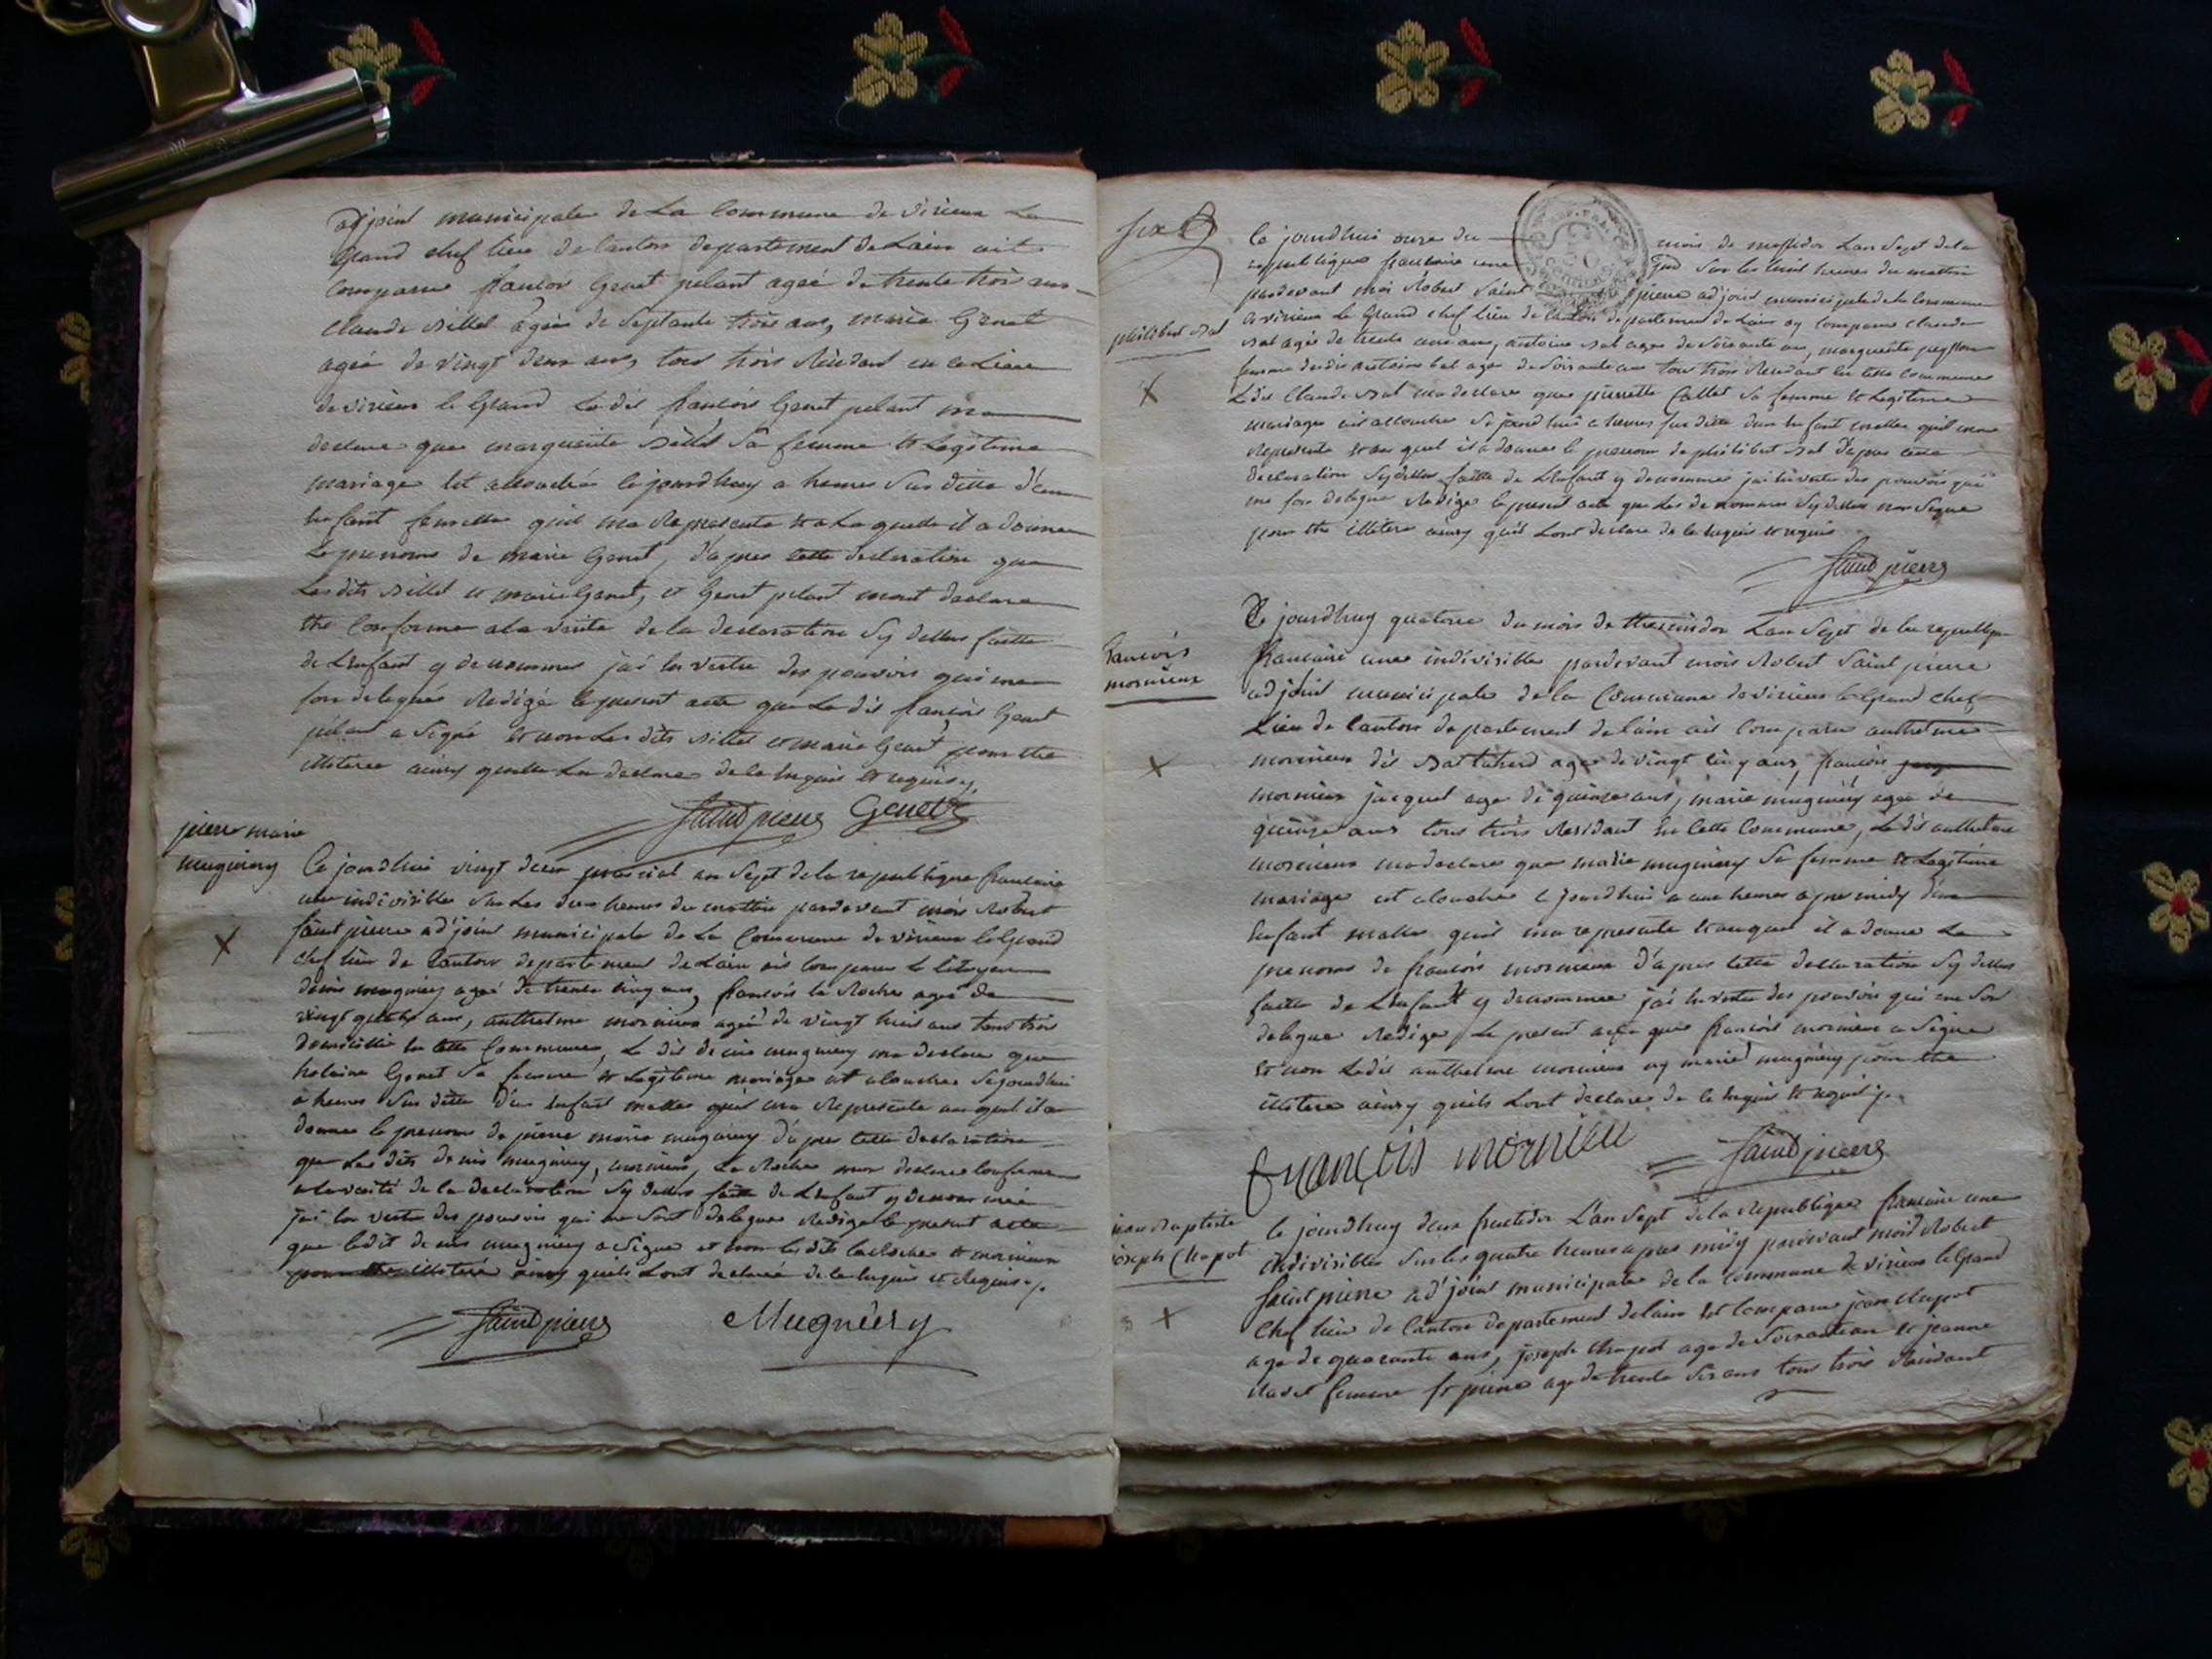 adjoint municipale de La Commune de virieu Le
Grand chef lieu de Canton departement de Lain ait
Comparu francois Genet pelant ageé de trente trois ans
Claude Billet agéé de Septante trois ans, marie Genet
ageé de vingt deux ans, tous trois Residant en ce Lieu
de virieu le Grand Le dit francois Genet pelant ma
declare que marguerite Billet Sa femme et Legitime
mariage Est accouchée ce jourdhuy a heures Sus ditte d'un
Enfant femelle quil ma Represente et a La quelle il a donne
Le prenoms de marie Genet, d'apres cette declaration que
Les dits Billet et marie Genet, et Genet pelant mont declare
etre Conforme a la verite de la declaration Sy dessus faitte
de L'enfant y denommes jai En vertu des pouvoirs qui me
son delegues Redigé le present acte que Le dit francois Genet
pelant a Signé et non Les dits Billet et marie Genet pour etre
illiteree ainsy quelle La declare de ce Enquis et requis
Saint pierre Genet
pierre marie
mugniery
Ce jourdhui vingt deux prairial an Sept de la republique francaise
une indivisible Sur Les heures du mattin pardevant mois Robert
Saint pierre ad'joint municipale de La Commune de virieu le Grand
chef lieu de Canton departement de Lain ait Comparu Le Citoyen
denis mugniery ageé de trente cinq ans, francois la Roche ageé de
vingt quatre ans, anthelme mornieu ageé de vingt huit ans tous trois
domicillie En cette Commune, Le dit denis mugniery ma declare que
helaine Genet Sa femme et Legitime mariage est acouchee Sejourdhui
a heures Sus ditte d'un Enfant malle quil ma Represente au quel il a
donne le prenoms de pierre marie mugniery d'apres cette declaration
que Les dits denis mugniery, mornieu, La Roche mon declare Conforme
a la verité de la declaration Sy dessus faitte de L'enfant y denommeé
jai En vertu des pouvoirs qui me Sont delegues Redige le present acte
que ledit denis mugniery a Signe et non les dits laRoche et mornieu
pour etre illiteré ainsy quils Lont declareé de ce Enquis et Requis
Saint pierre Mugniery
Six
Ce jourdhui onze du mois de messidor Lan Sept de la
reppublique francaise une Ind Sur les huit heures du mattin
pardevant moi Robert Saint pierre adjoint municipale de la Commune
de virieu Le Grand chef lieu de Canton departement de Lain ay Comparu Claude
philibert Bal
Bal agés de trente ans, antoine Bal age de Soixante ans, marguerite
femme dudit antoine bal age de Soixante ans tous trois Residant En cette Commune
Ledit Claude Bal ma declare que pierrette Callet Sa femme et Legitime
mariage ait accouchee Se jourdhui a heures Sus ditte dun Enfant malle quil me
Represente et au quel il a donne le prenom de philibert Bal Dapres cette
declaration Sy dessus faitte de L'enfant y denommes jai En vertu des pouvoirs qui
me son delegue Redige le present acte que Les denommes Sy dessus non Signe
pour etre illitere ainsy quils Lont declare de ce Enquis et requis
Saint pierre
Ce jourdhuy quatorze du mois de thermidor Lan Sept de la republique
francois
mornieux
francaise une indivisible pardevant mois Robert Saint pierre
adjoint municipale de la Commune de virieu le Grand chef
Lieu de Canton departement de lain ait Comparu anthelme
mornieu dit age de vingt cinq ans, francois
mornieu jacquet age de quinze ans, marie mugniery ageé de
quinze ans tous trois Residant En cette Commune, Le dit anthelme
mornieux ma declare que marie mugniery Sa femme et Legitime
mariage est acouchee ce jourdhui a une heures apre midy d'un
Enfant malle quil ma represente et auquel il a donne Le
prenoms de francois mornieux d'apres cette declaration Sy dessus
faitte de L'enfant y denommee jai En vertu des pouvoirs qui me Son
delegue Redige Le present acte que francois mornieu a Signe
et non Ledit anthelme mornieu ny marie mugniery pour etre
illitere ainsy quils Lont declares de ce Enquis et requis
françois mornieu Saint pierre
jean Baptiste
joseph Chapot
Ce jourdhuy deux fructidor L'an Sept de la Republique francaise une
indivisible Sur les quatre heures apres midy pardevant moid Robert
Saint pierre ad'joint municipale de la Commune de virieu le Grand
Chef lieu de Canton departement de lain Est Comparu jean Chapot
age de quarante ans, joseph Chapot age de Soixante ans et jeanne
femme St pierre age de trente Six ans tous trois Residant